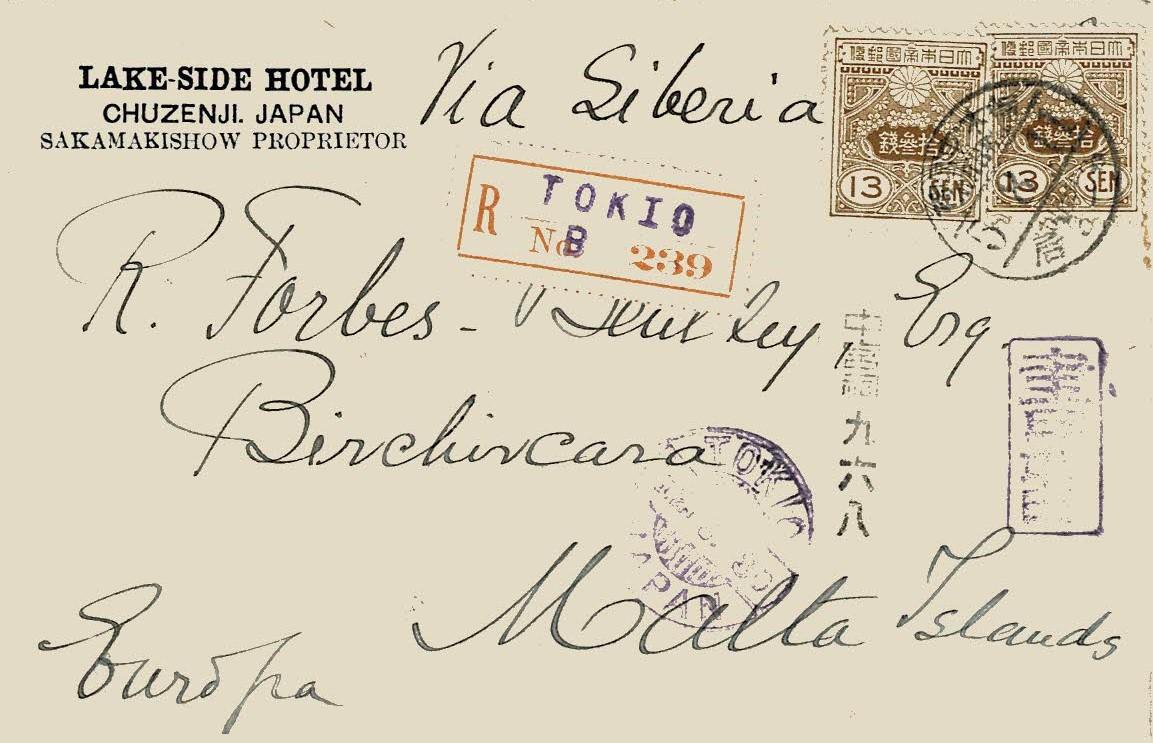 LAKE-SIDE HOTEL
CHUZENJI. JAPAN
SAKAMAKISHOW PROPRIETOR
Via Siberia
大日本帝國郵便
拾参錢
13 SEN
大日本帝國郵便
拾参錢
13 SEN
R TOKIO
No B 239
R. Forbes- Esq.
Birchircara
九六八
TOKIO
JAPAN
Malta Islands
Európa